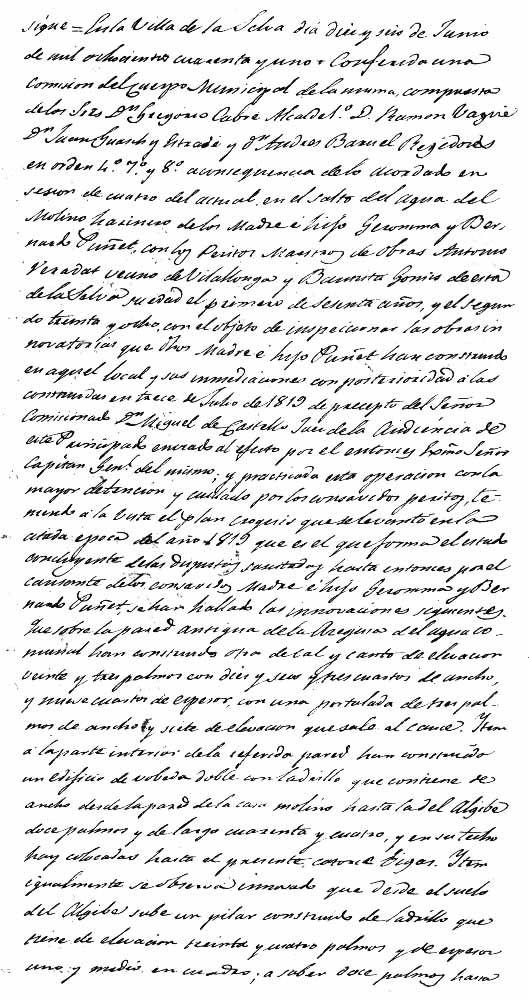 sigue = En la Villa de la Selva dia diez y seis de Junio
de mil ochocientos cuarenta y uno = Conferida una
Comision del Cuerpo Municipal de la misma, compuesta
de los Sres Dn Gregorio Cabré Alcalde 1º D. Ramon Vagué
Dn Juan Guasch y Estradé y dn Andres Baruel Regidores
en orden 4º 7º y 8º a consequencia de lo acordado en
sesion de cuatro del actual, en el salto del agua del
Molino harinero de los Madre é hijo Geronima y Ber-
nardo Puñet, con los Peritos Maestros de Obras Antonio
Veradat vecino de Vilallonga y Bautista Gomis de esta
de la Selva su edad el primero de sesenta años, y el segun
do treinta y ocho, con el objeto de inspeccionar las obras in
novatorias que dhos Madre é hijo Puñet han construido
en aquel local y sus inmediaciones con posterioridad á las
construidas en trece de Julio de 1819 de precepto del Señor
Comisionado Dn Miguel de Castells Juez de la Audiencia de
este Principado enviado al efecto por el entonces Exmo Señor
Capitan Genl del mismo; y practicada esta operacion con la
mayor detencion y cuidado por los consavidos peritos, te-
niendo á la vista el plan que se levantó en la
citada epoca del año 1819 que es el que forma el estado
concluyente de las disputas suscitadas hasta entonces por el
causante de los consavidos Madre é hijo Geronima y Ber
nardo Puñet, se han hallado las innovaciones siguientes.
Que sobre la pared antigua de la Azequia del agua co-
munal han construido otra de cal y canto de elevacion
veinte y tres palmos con diez y seis y tres cuartos de ancho,
y nueve cuartos de espesor, con una portalada de tres pal-
mos de ancho y siete de elevacion que sale al cauce. Item
á la parte interior de la referida pared han construido
un edificio de vobeda doble con ladrillo que contiene de
ancho desde la pared de la casa molino hasta la del Algibe
doce palmos y de largo cuarenta y cuatro, y en su techo
hay colocadas hasta el presente catorce bigas. Item
igualmente se observa innovado que desde el suelo
del Algibe sube un pilar construido de ladrillo que
tiene de elevacion treinta y cuatro palmos y de espesor
uno y medio en cuadro; a saber doce palmos hasta